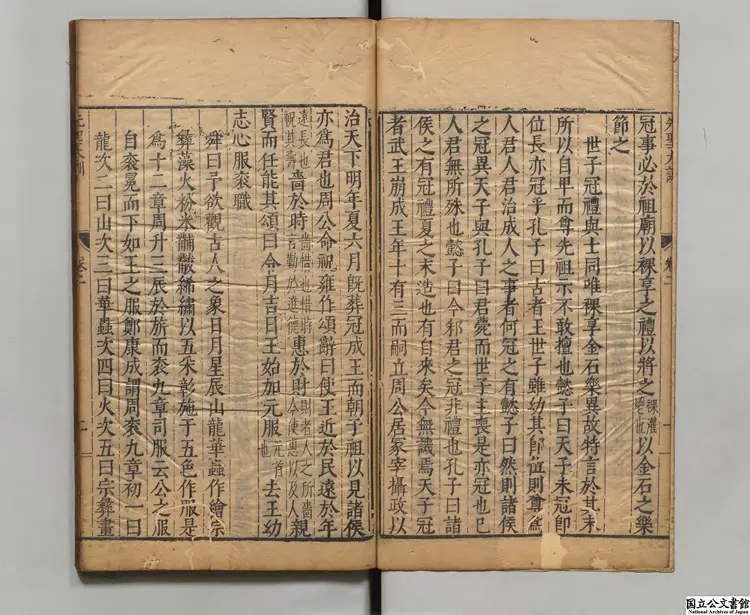 先聖大訓 卷二
冠事必於祖廟以祼享之禮以將之祼灌鬯也以金石之樂
節之
世子冠禮與士同唯祼享金石樂異故特言於其末
所以自卑而尊先祖示不敢擅也懿子曰天子未冠即
位長亦冠乎孔子曰古者王世子雖幼其即位則尊爲
人君人君治成人之事者何冠之有懿子曰然則諸侯
之冠異天子與孔子曰君薨而世子主喪是亦冠也已
人君無所殊也懿子曰今邾君之冠非禮也孔子曰諸
侯之有冠禮夏之末造也有自來矣今無譏焉天子冠
者武王崩成王年十有三而嗣立周公居冢宰攝政以
治天下明年夏六月既葬冠成王而朝于祖以見諸侯
亦爲君也周公命祝雍作頌辭曰使王近於民遠於年
遠長也祝其壽嗇於時嗇惜也惜時言勤於進德惠於財財者人之所嗇今使惠以及人親
賢而任能其頌曰令月吉日王始加元服元首也去王幼
志心服衮職
舜曰予欲觀古人之象日月星辰山龍華蟲作繪宗
彝藻火粉米黼黻絺繡以五采彰施于五色作服是
爲十二章周升三辰於旂而衮九章司服云公之服
自衮冕而下如王之服鄭康成謂周衮九章初一曰
龍次二曰山次三曰華蟲次四曰火次五曰宗彝畫
国立公文書館
National Archives of Japan